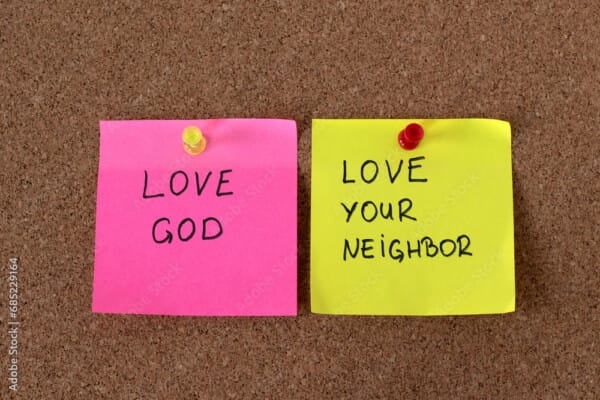 LOVE
GOD
LOVE
YOUR
NEiGHBOR
Adobe Stock | #685229164